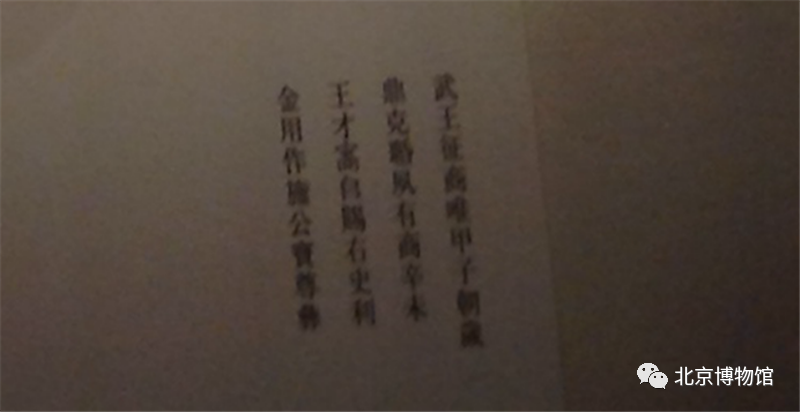 武王征商唯甲子朝歲
鼎克夙有商辛未
王才𠂤賜右史利
金用作公寶尊彝
北京博物馆